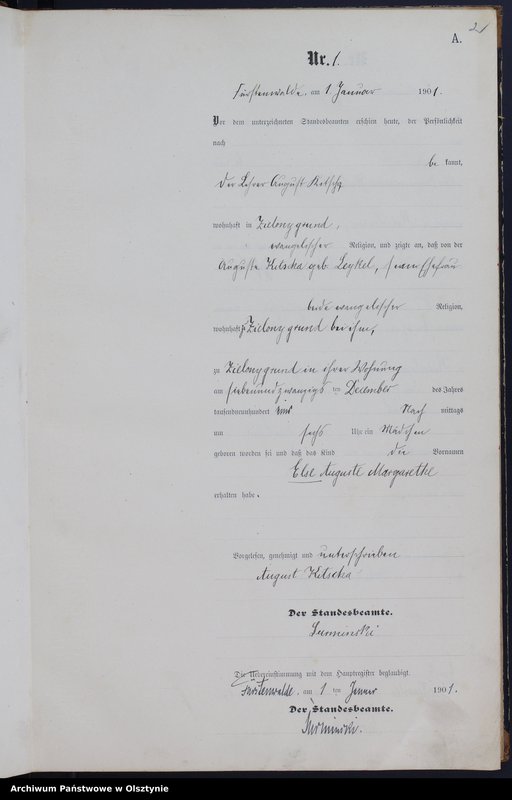 21
A.
Nr. 1.
Fürstenwalde, am 1 Januar 1901.
Vor dem unterzeichneten Standesbeamten erschien heute, der Persönlichkeit
nach
be kannt,
der Lehrer August
wohnhaft in Zielonygrund,
evangelischer Religion, und zeigte an, daß von der
Auguste Kitscha geb. seiner Ehefrau
beide evangelischer Religion,
wohnhaft Zielonygrund bei ihm,
zu Zielonygrund in ihrer Wohnung
am siebenundzwanzigs ten Dezember des Jahres
tausendneunhundert Nach mittags
um sechs Uhr ein Mädchen
geboren worden sei und daß das Kind die Vornamen
Else Auguste Margarethe
erhalten habe.
Vorgelesen, genehmigt und unterschrieben
August Kitscha
Der Standesbeamte.
Die Uebereinstimmung mit dem Hauptregister beglaubigt.
Fürstenwalde, am 1 ten Januar 1901.
Der Standesbeamte.
Archiwum Państwowe w Olsztynie